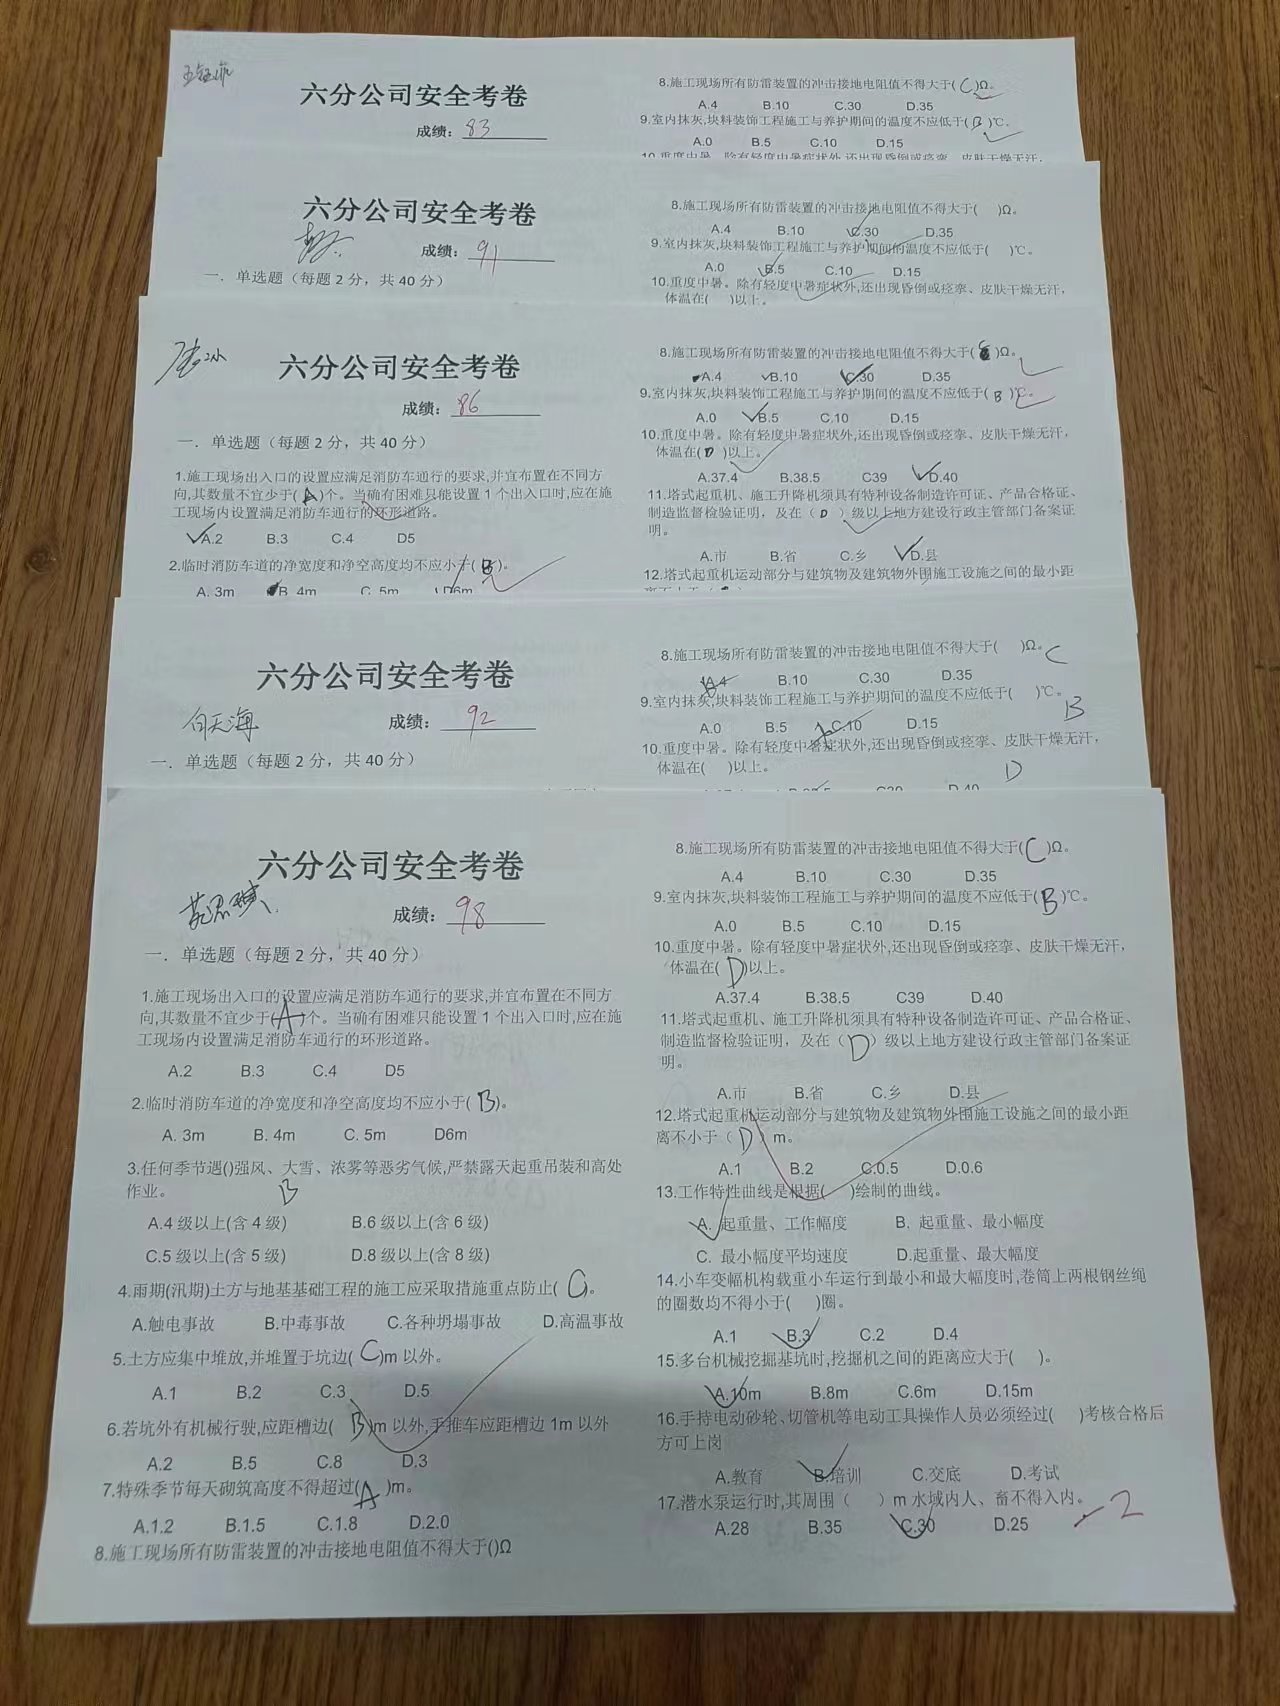 六分公司安全考卷
成绩： 83
8.施工现场所有防雷装置的冲击接地电阻值不得大于( C )Ω。
A.4 B.10 C.30 D.35
9.室内抹灰,块料装饰工程施工与养护期间的温度不应低于( B )℃。
A.0 B.5 C.10 D.15
10.重度中暑。除有轻度中暑症状外,还出现昏倒或痉挛、皮肤干燥无汗，
六分公司安全考卷
成绩： 91
一．单选题（每题 2 分，共 40 分）
8.施工现场所有防雷装置的冲击接地电阻值不得大于( )Ω。
A.4 B.10 C.30 D.35
9.室内抹灰,块料装饰工程施工与养护期间的温度不应低于( )℃。
A.0 B.5 C.10 D.15
10.重度中暑。除有轻度中暑症状外,还出现昏倒或痉挛、皮肤干燥无汗，
体温在( )以上。
六分公司安全考卷
成绩： 86
一．单选题（每题 2 分，共 40 分）
1.施工现场出入口的设置应满足消防车通行的要求,并宜布置在不同方
向,其数量不宜少于( A )个。当确有困难只能设置 1 个出入口时,应在施
工现场内设置满足消防车通行的环形道路。
A.2 B.3 C.4 D5
2.临时消防车道的净宽度和净空高度均不应小于( B )。
A. 3m B. 4m C. 5m D6m
8.施工现场所有防雷装置的冲击接地电阻值不得大于( C )Ω。
A.4 B.10 C.30 D.35
9.室内抹灰,块料装饰工程施工与养护期间的温度不应低于( B )℃。
A.0 B.5 C.10 D.15
10.重度中暑。除有轻度中暑症状外,还出现昏倒或痉挛、皮肤干燥无汗，
体温在( D )以上。
A.37.4 B.38.5 C39 D.40
11.塔式起重机、施工升降机须具有特种设备制造许可证、产品合格证、
制造监督检验证明，及在（ D ）级以上地方建设行政主管部门备案证
明。
A.市 B.省 C.乡 D.县
12.塔式起重机运动部分与建筑物及建筑物外围施工设施之间的最小距
六分公司安全考卷
向天海
成绩： 92
一．单选题（每题 2 分，共 40 分）
8.施工现场所有防雷装置的冲击接地电阻值不得大于( )Ω。 C
A.4 B.10 C.30 D.35
9.室内抹灰,块料装饰工程施工与养护期间的温度不应低于( )℃。 B
A.0 B.5 C.10 D.15
10.重度中暑。除有轻度中暑症状外,还出现昏倒或痉挛、皮肤干燥无汗，
体温在( )以上。 D
六分公司安全考卷
成绩： 98
一．单选题（每题 2 分，共 40 分）
1.施工现场出入口的设置应满足消防车通行的要求,并宜布置在不同方
向,其数量不宜少于( A )个。当确有困难只能设置 1 个出入口时,应在施
工现场内设置满足消防车通行的环形道路。
A.2 B.3 C.4 D5
2.临时消防车道的净宽度和净空高度均不应小于( B )。
A. 3m B. 4m C. 5m D6m
3.任何季节遇()强风、大雪、浓雾等恶劣气候,严禁露天起重吊装和高处
作业。 B
A.4 级以上(含 4 级) B.6 级以上(含 6 级)
C.5 级以上(含 5 级) D.8 级以上(含 8 级)
4.雨期(汛期)土方与地基基础工程的施工应采取措施重点防止( C )。
A.触电事故 B.中毒事故 C.各种坍塌事故 D.高温事故
5.土方应集中堆放,并堆置于坑边( C )m 以外。
A.1 B.2 C.3 D.5
6.若坑外有机械行驶,应距槽边( B )m 以外,手推车应距槽边 1m 以外
A.2 B.5 C.8 D.3
7.特殊季节每天砌筑高度不得超过( A )m。
A.1.2 B.1.5 C.1.8 D.2.0
8.施工现场所有防雷装置的冲击接地电阻值不得大于()Ω
8.施工现场所有防雷装置的冲击接地电阻值不得大于( C )Ω。
A.4 B.10 C.30 D.35
9.室内抹灰,块料装饰工程施工与养护期间的温度不应低于( B )℃。
A.0 B.5 C.10 D.15
10.重度中暑。除有轻度中暑症状外,还出现昏倒或痉挛、皮肤干燥无汗，
体温在( D )以上。
A.37.4 B.38.5 C39 D.40
11.塔式起重机、施工升降机须具有特种设备制造许可证、产品合格证、
制造监督检验证明，及在（ D ）级以上地方建设行政主管部门备案证
明。
A.市 B.省 C.乡 D.县
12.塔式起重机运动部分与建筑物及建筑物外围施工设施之间的最小距
离不小于（ D ）m。
A.1 B.2 C.0.5 D.0.6
13.工作特性曲线是根据( )绘制的曲线。
A. 起重量、工作幅度 B. 起重量、最小幅度
C. 最小幅度平均速度 D.起重量、最大幅度
14.小车变幅机构载重小车运行到最小和最大幅度时,卷筒上两根钢丝绳
的圈数均不得小于( )圈。
A.1 B.3 C.2 D.4
15.多台机械挖掘基坑时,挖掘机之间的距离应大于( )。
A.10m B.8m C.6m D.15m
16.手持电动砂轮、切管机等电动工具操作人员必须经过( )考核合格后
方可上岗
A.教育 B.培训 C.交底 D.考试
17.潜水泵运行时,其周围（ ）m 水域内人、畜不得入内。
A.28 B.35 C.30 D.25 -2